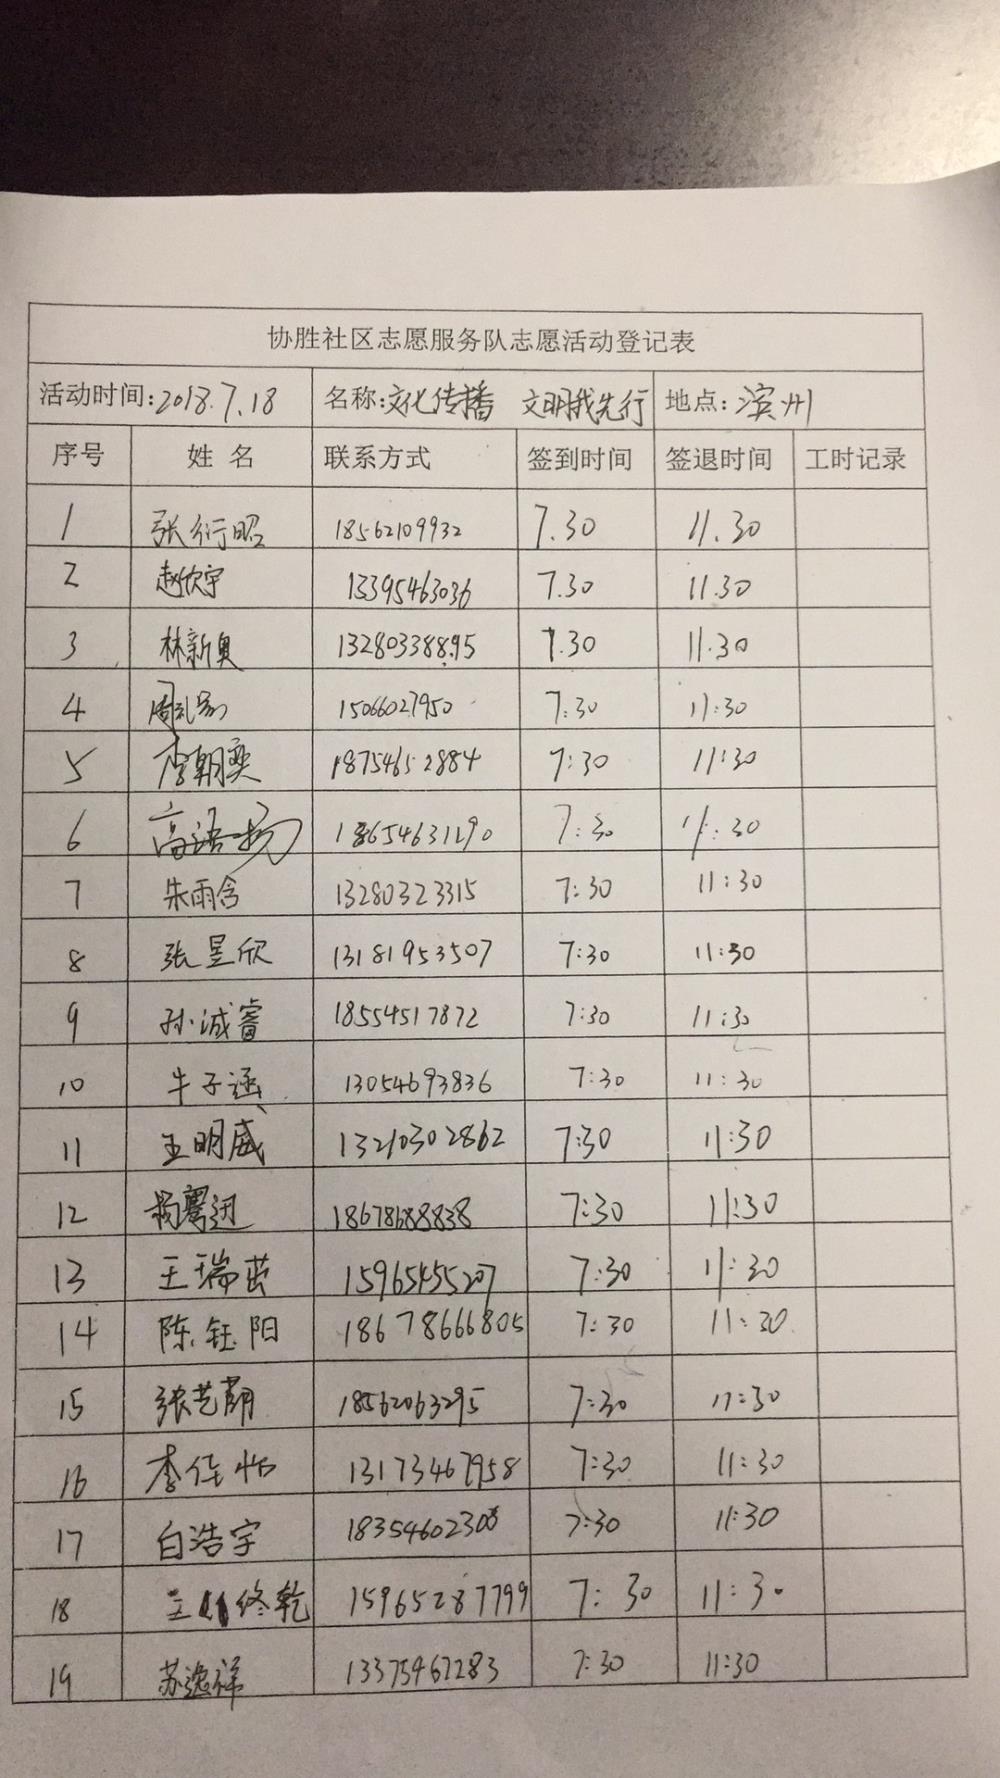 协胜社区志愿服务队志愿活动登记表
活动时间:2018.7.18 名称:文化传播 文明我先行 地点:滨州
序号 姓名 联系方式 签到时间 签退时间 工时记录
1 张衍昭 18562109932 7.30 11.30
2 赵欣宇 13395463036 7.30 11.30
3 林新奥 13280338895 7.30 11.30
4 周礼 15066027950 7:30 11:30
5 李朝奕 18754652884 7:30 11:30
6 高语扬 18654631290 7:30 11:30
7 朱雨含 13280323315 7:30 11:30
8 张昱欣 13181953507 7:30 11:30
9 孙诚睿 18554517872 7:30 11:30
10 牛子涵 13054693836 7:30 11:30
11 王明威 13210302862 7:30 11:30
12 杨骞迅 18678688838 7:30 11:30
13 王瑞茁 15965455207 7:30 11:30
14 陈钰阳 18678666805 7:30 11:30
15 张艺萌 18562063295 7:30 11:30
16 李佳怡 13173467958 7:30 11:30
17 白浩宇 18354602300 7:30 11:30
18 王终乾 15965287799 7:30 11:30
19 苏逸祥 13375467283 7:30 11:30